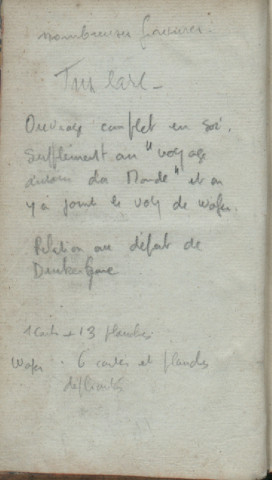 nombreuses gravures.
Très rare_
Ouvrage complet en soi.
Supplément au "voyage
autour du Monde" et on
y a joint le voy de Wafer.
Relation au départ de
1 carte + 13 planches
Wafer. 6 cartes et planches
dépliantes